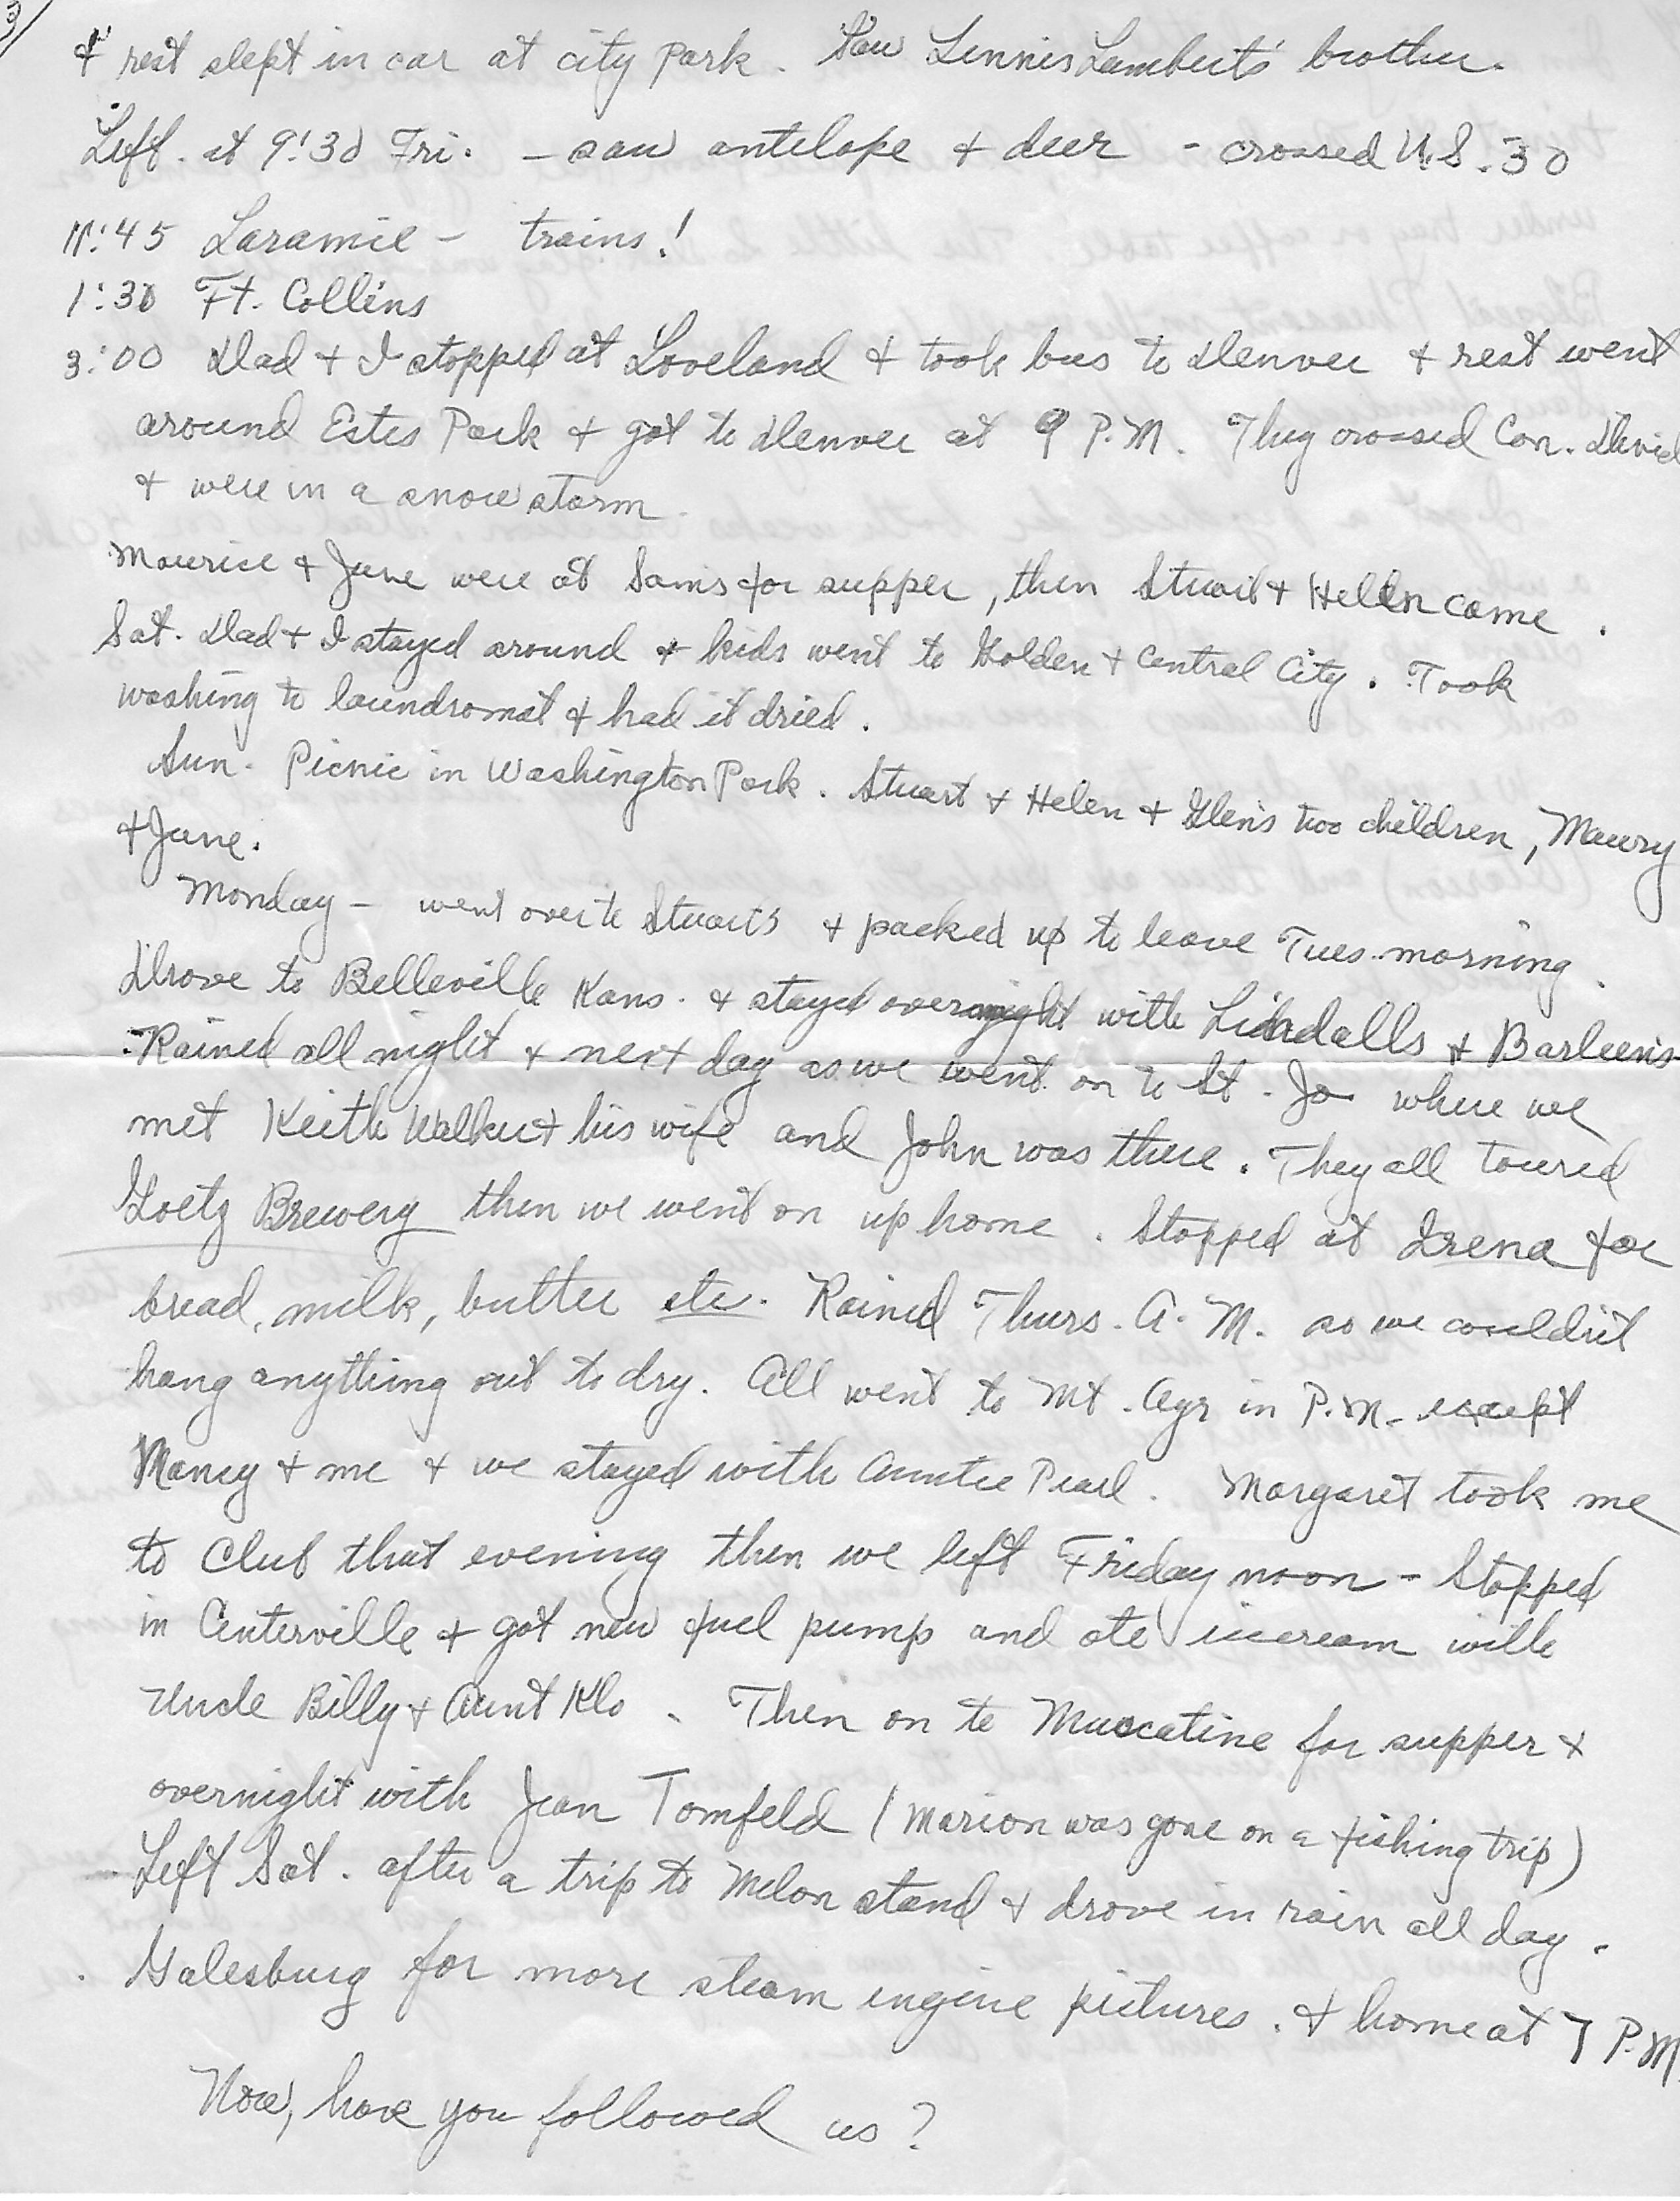 3/
& rest slept in car at city park. Saw Lennis Lambert's brother.
Left. at 9:30 Fri. - saw antelope & deer - crossed U.S. 30
11:45 Laramie - trains!
1:30 Ft. Collins
3:00 Dad & I stopped at Loveland & took bus to Denver & rest went
around Estes Park & got to Denver at 9 P.M. They crossed Con. Divid
& were in a snow storm.
Maurice & June were at Sams for supper, then Stuart & Helen came.
Sat. Dad & I stayed around & kids went to Golden & Central City. Took
washing to laundromat & had it dried.
Sun. Picnic in Washington Park. Stuart & Helen & Glen's two children, Maury
& June.
Monday - went over to Stuart's & packed up to leave Tues. morning.
Drove to Belleville Kans. & stayed overnight with & Barleen's
Rained all night & next day as we went on to St. Jo where we
met Keith Walker & his wife and John was there. They all toured
Goetz Brewery then we went on up home. Stopped at Irena for
bread, milk, butter etc. Rained Thurs. A.M. so we couldn't
hang anything out to dry. All went to Mt. Ayr in P.M. except
Nancy & me & we stayed with Auntie Pearl. Margaret took me
to Club that evening then we left Friday noon - Stopped
in Centerville & got new fuel pump and ate icecream with
Uncle Billy & Aunt Klo. Then on to Muscatine for supper &
overnight with Jean Tomfeld (Marion was gone on a fishing trip)
Left Sat. after a trip to Melon stand & drove in rain all day.
Galesburg for more steam engine pictures. & home at 7 P.M.
Now, have you followed us?